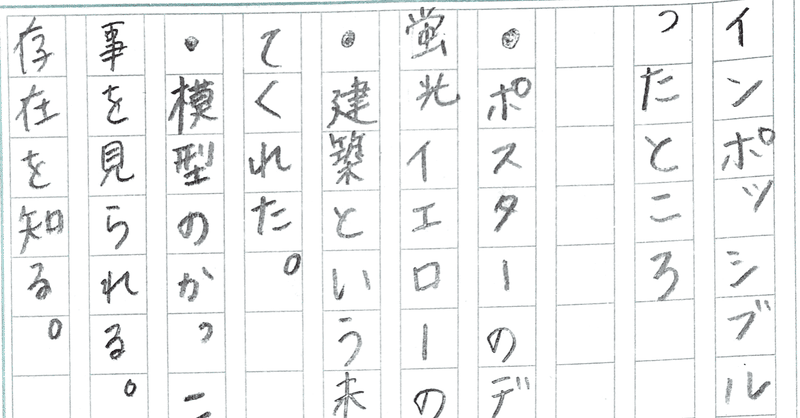 インポッシブル
ったところ
・ポスターのデ
蛍光イエローの
・建築という未
てくれた。
・模型のか
事を見られる。
存在を知る。